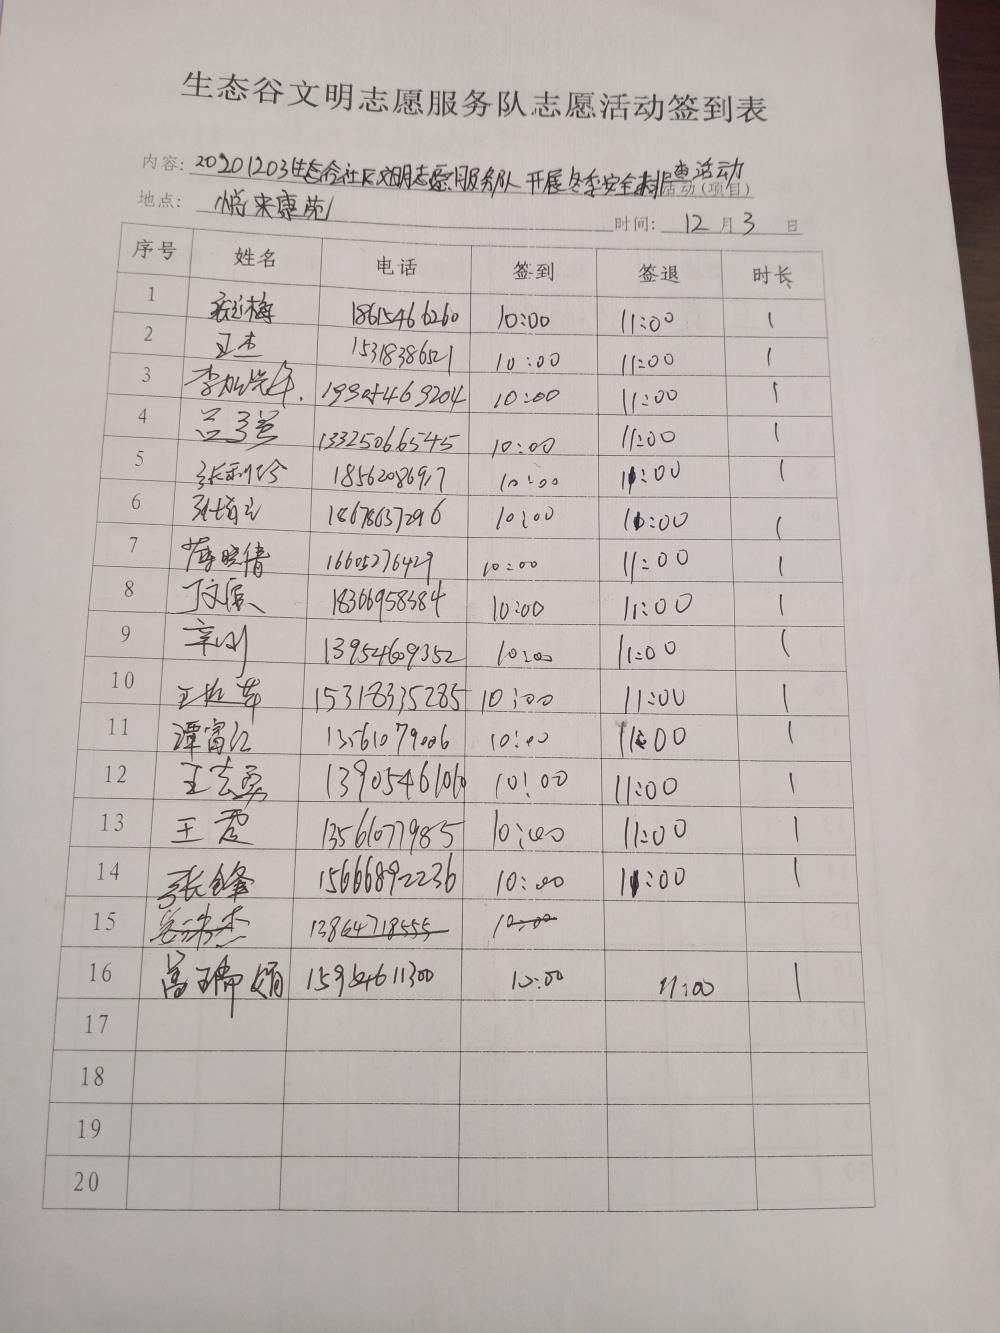 生态谷文明志愿服务队志愿活动签到表
内容: 20201203生态谷社区文明志愿服务队开展冬季安全排查活动 活动(项目)
地点: 悦来康苑 时间: 12月3日
序号 姓名 电话 签到 签退 时长
1 18615466260 10:00 11:00 1
2 王杰 15318386521 10:00 11:00 1
3 10:00 11:00 1
4 13325066545 10:00 11:00 1
5 10:00 11:00 1
6 18678657296 10:00 11:00 1
7 薛晓倩 16605276429 10:00 11:00 1
8 18306958384 10:00 11:00 1
9 辛刚 13954609352 10:00 11:00 1
10 15318335285 10:00 11:00 1
11 谭富江 13561079006 10:00 11:00 1
12 王志勇 13905461060 10:00 11:00 1
13 王霞 13561077985 10:00 11:00 1
14 张锋 15666892236 10:00 11:00 1
15 13864718555 10:00
16 高瑞娟 15954611300 10:00 11:00 1
17
18
19
20